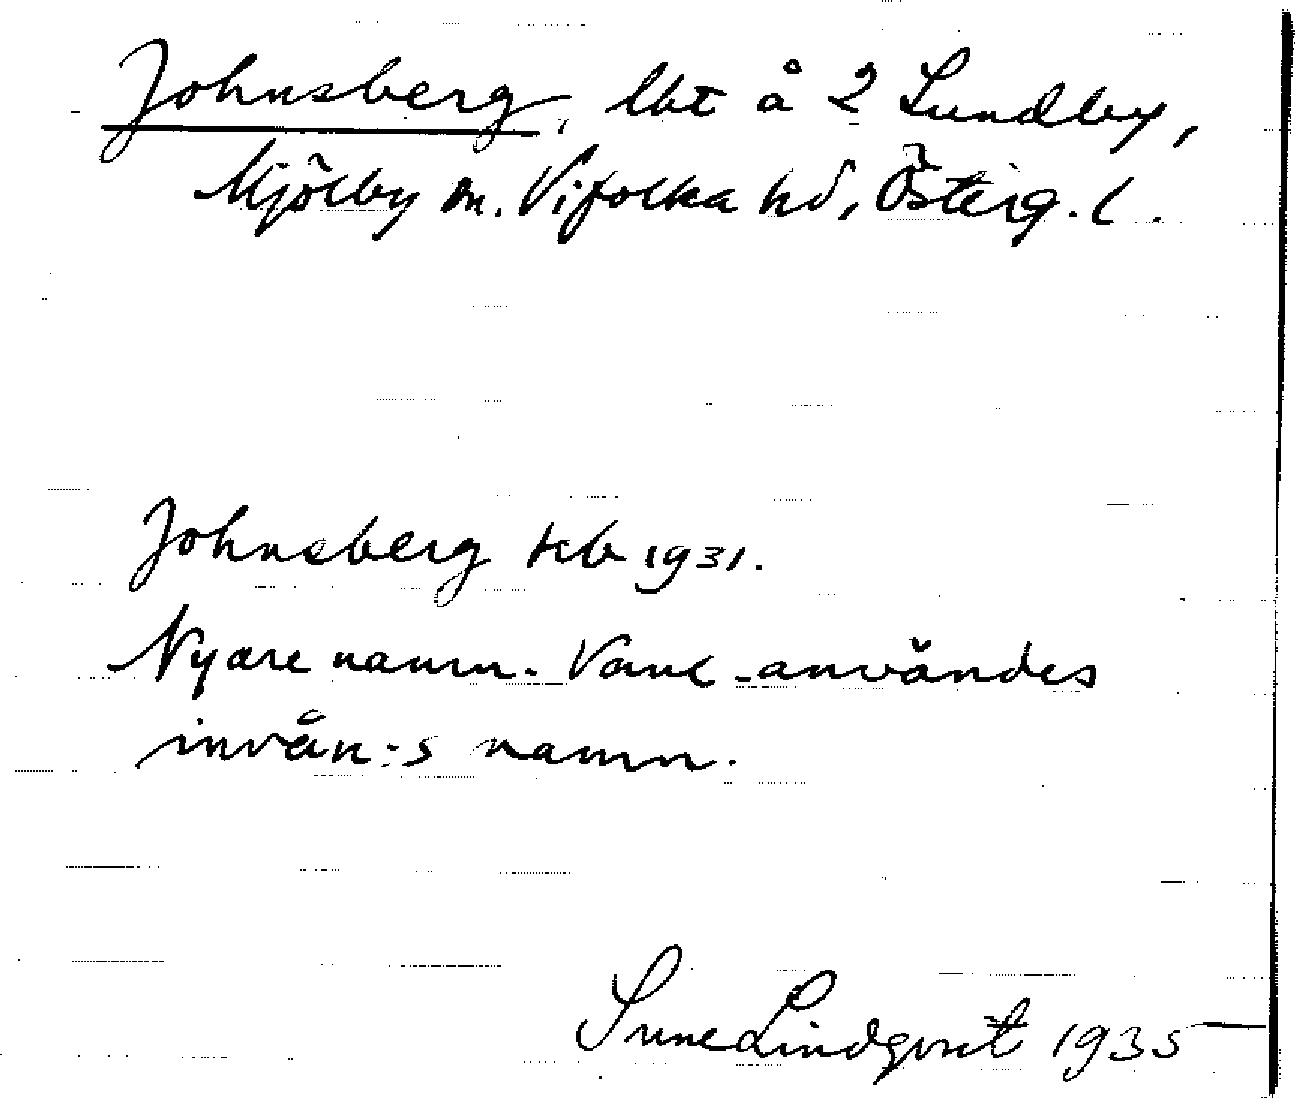 Johnsberg, lht å 2 Lundby,
Mjölby sn. Vifolka hd, Österg. l.
Johnsberg kb 1931.
Nyare namn. Vanl. användes
invån:s namn.
Sune Lindqvist 1935